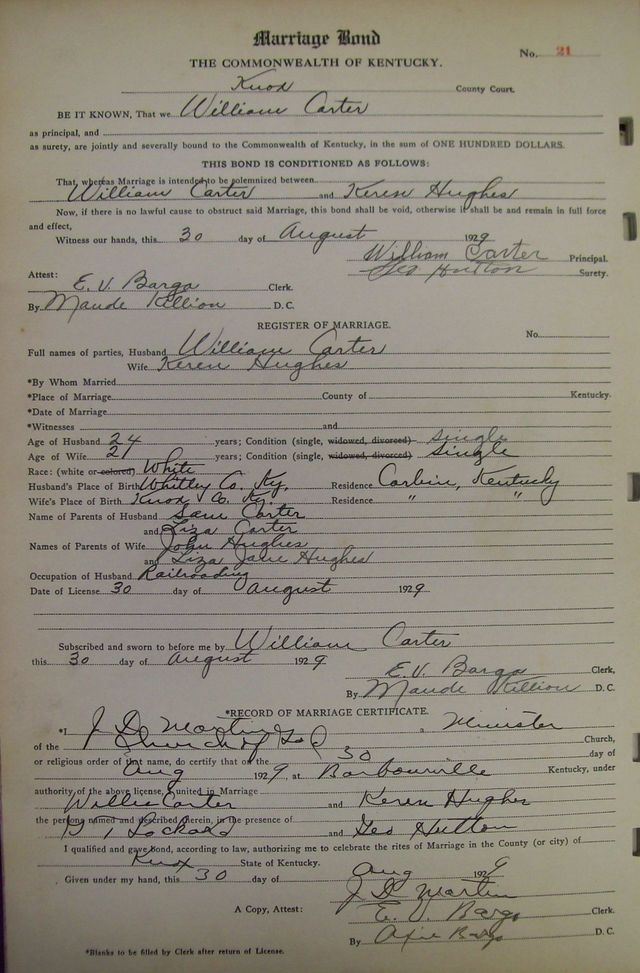 Marriage Bond
No. 21
THE COMMONWEALTH OF KENTUCKY.
Knox County Court.
BE IT KNOWN, That we William Carter
as principal, and
as surety, are jointly and severally bound to the Commonwealth of Kentucky, in the sum of ONE HUNDRED DOLLARS.
THIS BOND IS CONDITIONED AS FOLLOWS:
That, whereas Marriage is intended to be solemnized between
William Carter and Keren Hughes
Now, if there is no lawful cause to obstruct said Marriage, this bond shall be void, otherwise it shall be and remain in full force
and effect,
Witness our hands, this 30 day of August 1929
William Carter Principal.
Geo Hutton Surety.
Attest:
E. V. Barga Clerk.
By Maude Killion D. C.
REGISTER OF MARRIAGE.
No.
Full names of parties, Husband William Carter
Wife Keren Hughes
*By Whom Married
*Place of Marriage County of Kentucky.
*Date of Marriage
*Witnesses and
Age of Husband 24 years; Condition (single, widowed, divorced) single
Age of Wife 21 years; Condition (single, widowed, divorced) single
Race: (white or colored) White
Husband's Place of Birth Whitley Co. Ky. Residence Corbin, Kentucky
Wife's Place of Birth Knox Co. Ky. Residence " "
Name of Parents of Husband Sam Carter
and Liza Carter
Names of Parents of Wife John Hughes
and Liza Jane Hughes
Occupation of Husband Railroading
Date of License 30 day of August 1929
Subscribed and sworn to before me by William Carter
this 30 day of August 1929
E. V. Barga Clerk,
By Maude Killion D. C.
*RECORD OF MARRIAGE CERTIFICATE.
*I J D Martin a Minister
of the Church of God Church,
or religious order of that name, do certify that on the 30 day of
Aug 1929, at Barbourville Kentucky, under
authority of the above license, I united in Marriage
Willie Carter and Keren Hughes
the persons named and described therein, in the presence of
Lockard and Geo Hutton
I qualified and gave bond, according to law, authorizing me to celebrate the rites of Marriage in the County (or city) of
Knox State of Kentucky.
Given under my hand, this 30 day of Aug 1929
J. D. Martin
A Copy, Attest: E. V. Barga Clerk.
By Barga D. C.
*Blanks to be filled by Clerk after return of License.